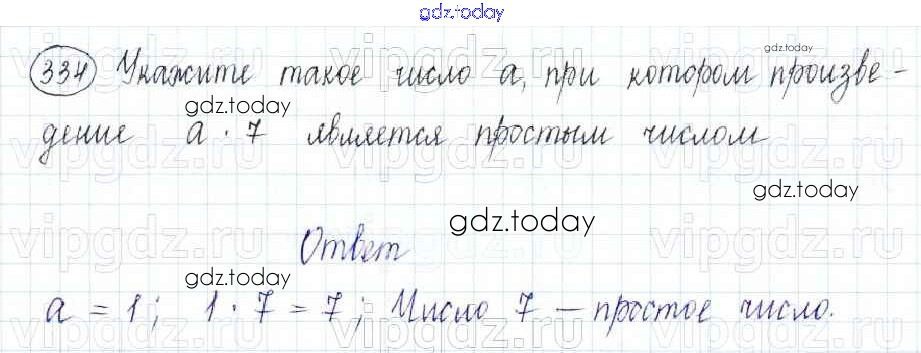 gdz.today
334 Укажите такое число a, при котором произве-
gdz.today
gdz.today
дение a · 7 является простым числом
vipgdz.ru
gdz.today
gdz.today
Ответ
gdz.today
a = 1; 1 · 7 = 7; Число 7 – простое число.